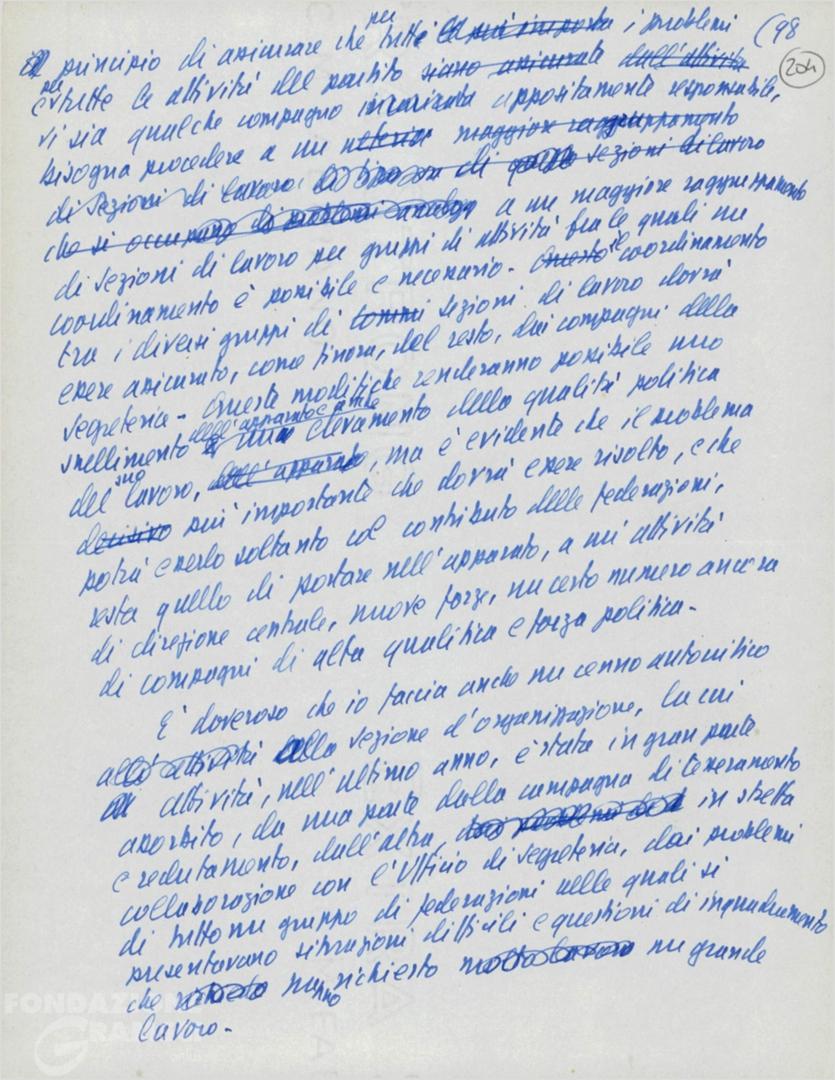 (98
204
il principio di assicurare che per tutti i problemi
e per tutte le attività del partito siano assicurate dall'attività
vi sia qualche compagno incaricato appositamente responsabile,
bisogna procedere a un ulterior maggiore raggruppamento
di sezioni di lavoro di sezioni di lavoro
che si occupano di problemi analoghi a un maggiore raggruppamento
di sezioni di lavoro per gruppi di attività fra le quali un
coordinamento è possibile e necessario. Questo il coordinamento
tra i diversi gruppi di sezioni di lavoro dovrà
essere assicurato, come finora, del resto, dai compagni della
segreteria. Queste modifiche renderanno possibile uno
snellimento dell'apparato e anche una elevamento della qualità politica
del suo lavoro, dell'apparato, ma è evidente che il problema
decisivo più importante che dovrà essere risolto, e che
potrà esserlo soltanto col contributo delle federazioni,
resta quello di portare nell'apparato, a un'attività
di direzione centrale, nuove forze, un certo numero ancora
di compagni di alta qualifica e forza politica.
E' doveroso che io faccia anche un cenno autocritico
all'attività alla sezione d'organizzazione, la cui
attività, nell'ultimo anno, è stata in gran parte
assorbita, da una parte dalla campagna di tesseramento
e reclutamento, dall'altra, in stretta
collaborazione con l'Ufficio di segreteria, dai problemi
di tutto un gruppo di federazioni nelle quali si
presentavano situazioni difficili e questioni di inquadramento
che hanno richiesto molto lavoro un grande
lavoro.
FONDAZIONE
GRAMSCI